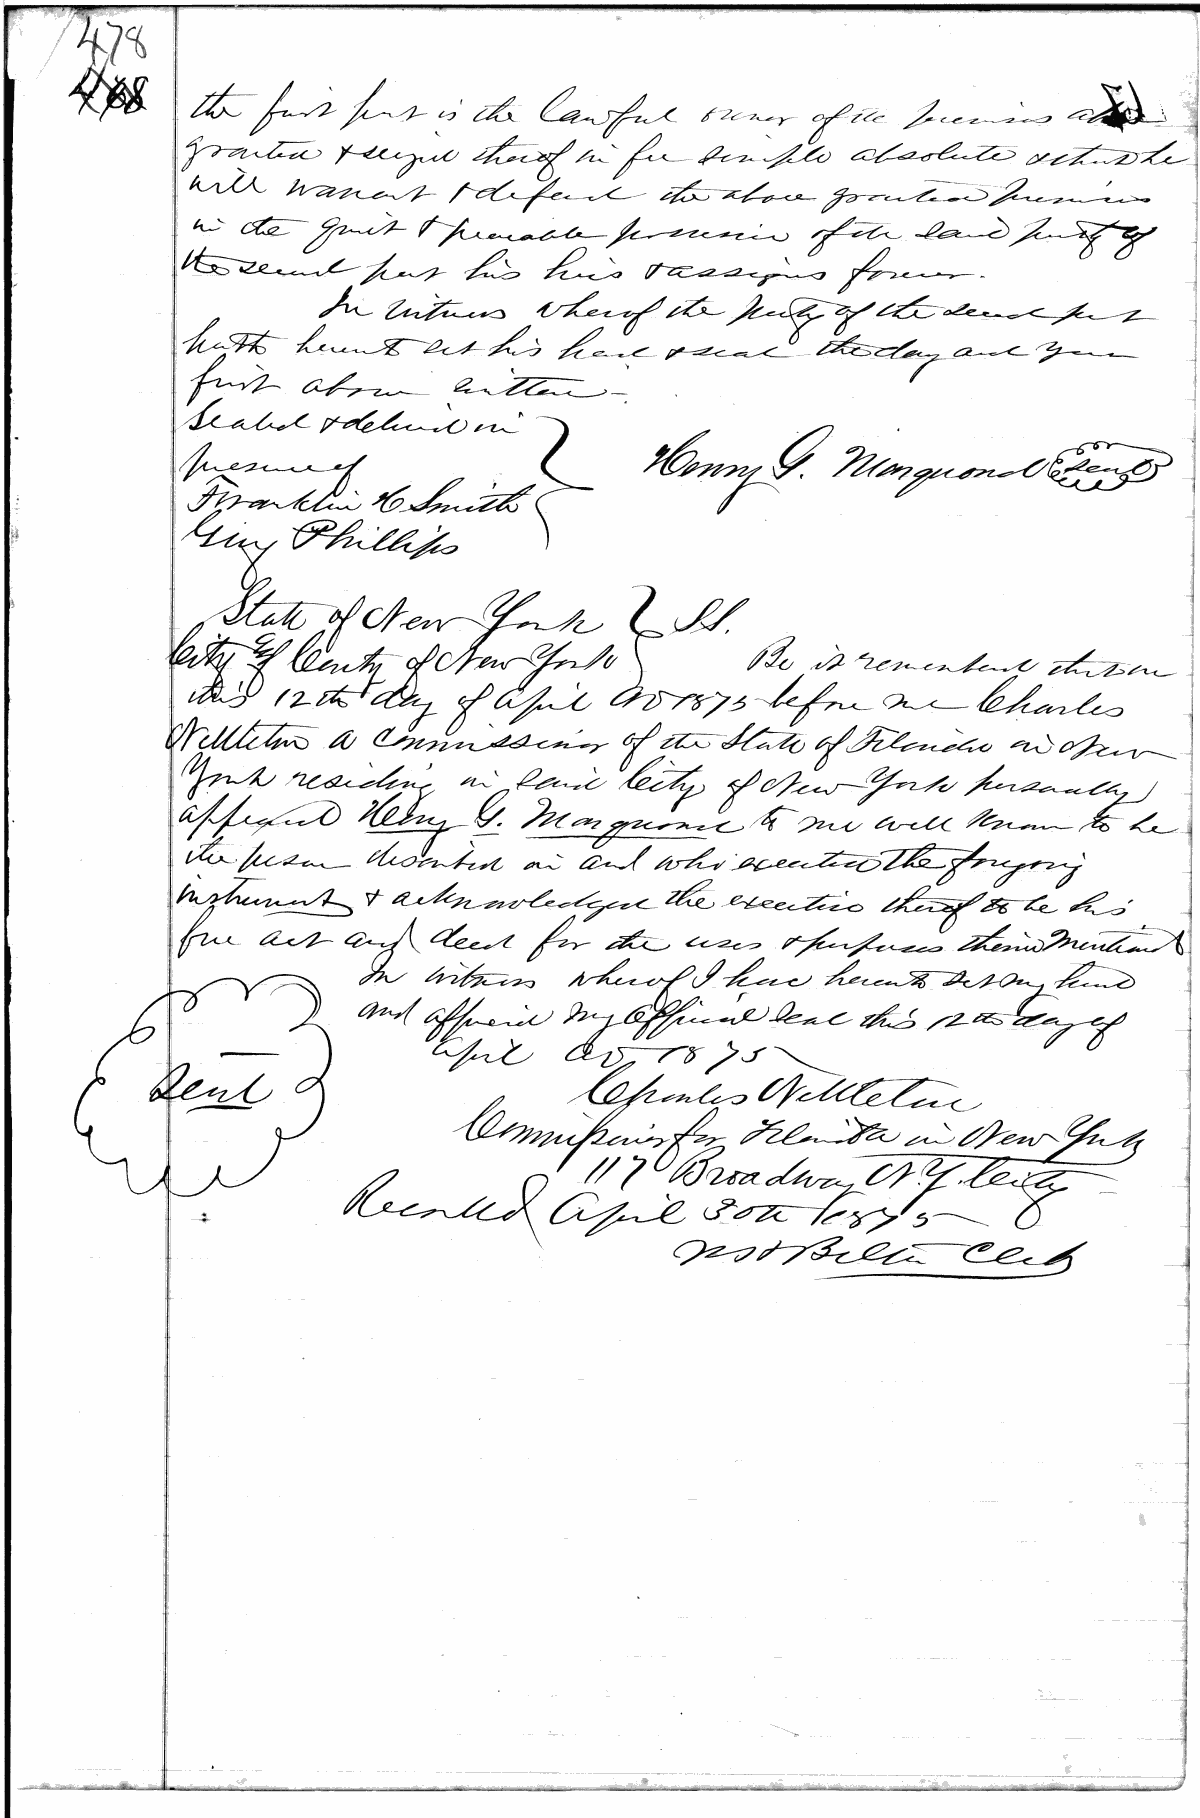 478
468
the first part is the lawful owner of the premises above
granted & seized thereof in fee simple absolute & that he
will warrant & defend the above granted premises
in the quiet & peaceable possession of the said party of
the second part his heirs & assigns forever.
In Witness whereof the party of the second part
hath hereunto set his hand & seal the day and year
first above written -
Sealed & delivered in
presence of
Henry G. Marquand Seal
Franklin H Smith
Guy Phillips
State of New York } S.S.
City & County of New York
Be it remembered that on
this 12th day of April AD 1875 before me Charles
Nettleton a commissioner of the State of Florida in New
York residing in said City of New York personally
appeared Henry G. Marquand to me well known to be
the person described in and who executed the foregoing
instrument & acknowledged the execution thereof to be his
free act and deed for the uses & purposes therein mentioned
In witness whereof I have hereunto set my hand
and affixed my official seal this 12th day of
April AD. 1875
Seal
Charles Nettleton
Commissioner for Florida in New York
117 Broadway N.Y. City
Recorded April 30th 1875
Clerk